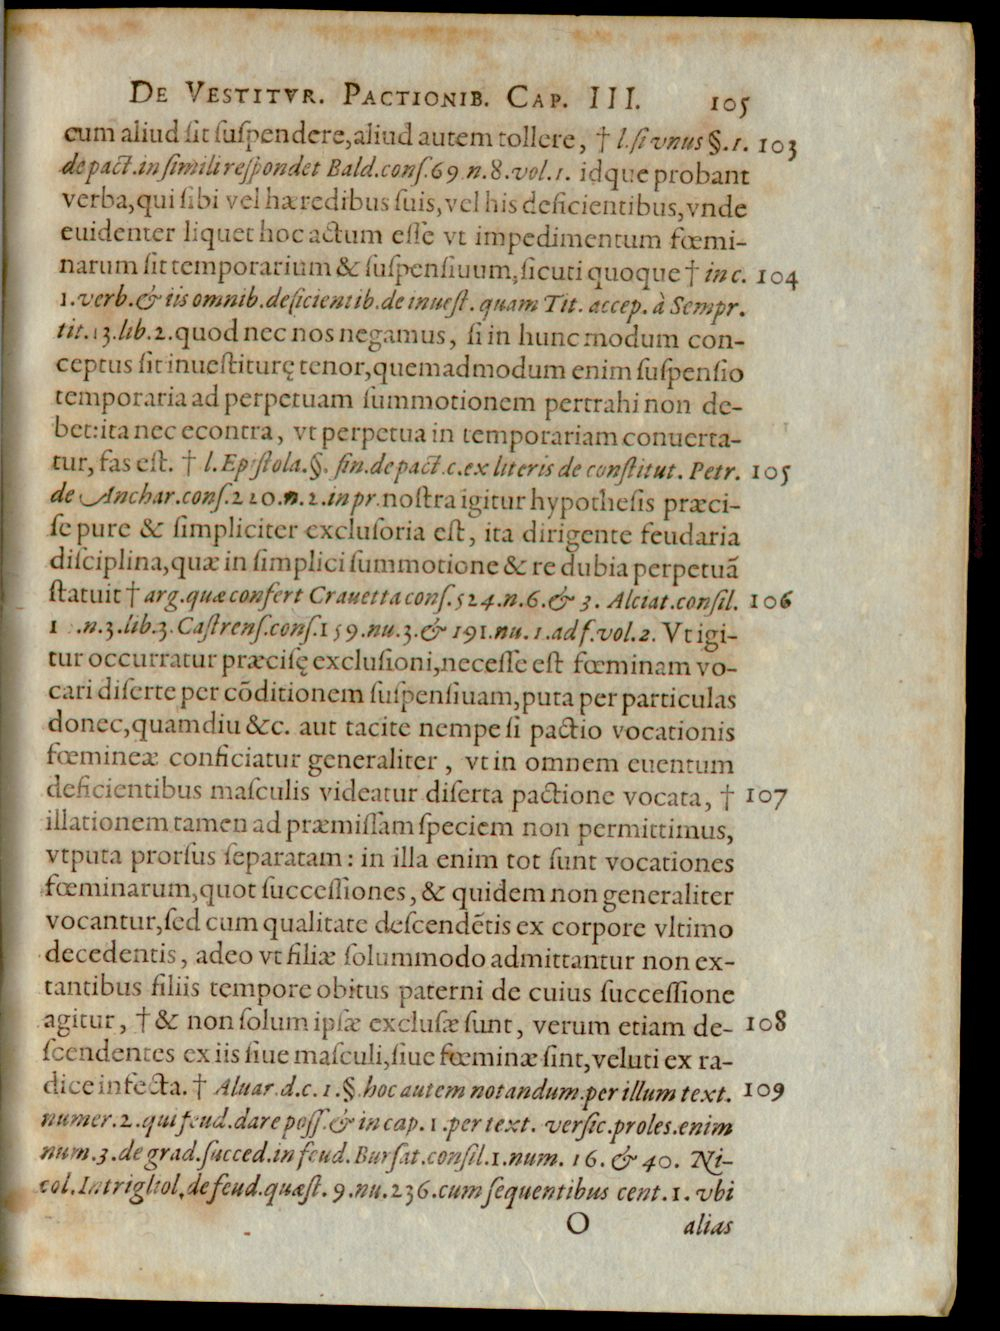 De Vestitvr. Pactionib. Cap. III. 105
cum aliud sit suſpendere,aliud autem tollere, † l.ſi vnus §.1. 103
de pact.in ſimili reſpondet Bald.conſ.69 n.8.vol.1. idque probant
verba,qui ſibi vel hæredibus ſuis,vel his deficientibus,vnde
euidenter liquet hoc actum eſſe vt impedimentum fœmi-
narum ſit temporarium & ſuſpenſiuum,ſicuti quoque † in c. 104
1.verb.& iis omnib.deficientib.de inueſt.quam Tit. accep. à Sempr.
tit.13.lib.2.quod nec nos negamus, ſi in hunc modum con-
ceptus ſit inueſtiturę tenor,quemadmodum enim ſuſpenſio
temporaria ad perpetuam ſummotionem pertrahi non de-
bet:ita nec econtra, vt perpetua in temporariam conuerta-
tur, fas eſt. † l.Epiſtola.§. fin.de pact.c.ex literis de conſtitut. Petr. 105
de Anchar.conſ.220.n.2.in pr.noſtra igitur hypotheſis præci-
ſe pure & ſimpliciter excluſoria eſt, ita dirigente feudaria
diſciplina,quæ in ſimplici ſummotione & re dubia perpetuā
ſtatuit † arg.quæ confert Crauetta conſ.524.n.6.& 3. Alciat.conſil. 106
1 .n.3.lib.3. Caſtrenſ.conſ.159.nu.3.& 191.nu.1.ad f.vol.2. Vt igi-
tur occurratur præciſę excluſioni,neceſſe eſt fœminam vo-
cari diſerte per cōditionem ſuſpenſiuam,puta per particulas
donec,quamdiu &c. aut tacite nempe ſi pactio vocationis
fœmineæ conficiatur generaliter , vt in omnem euentum
deficientibus maſculis videatur diſerta pactione vocata, † 107
illationem tamen ad præmiſſam ſpeciem non permittimus,
vtputa prorſus ſeparatam : in illa enim tot ſunt vocationes
fœminarum,quot ſucceſſiones, & quidem non generaliter
vocantur,ſed cum qualitate deſcendētis ex corpore vltimo
decedentis, adeo vt filiæ ſolummodo admittantur non ex-
tantibus filiis tempore obitus paterni de cuius ſucceſſione
agitur, † & non ſolum ipſæ excluſæ ſunt, verum etiam de- 108
ſcendentes ex iis ſiue maſculi,ſiue fœminæ ſint,veluti ex ra-
dice infecta. † Aluar.d.c.1.§.hoc autem notandum.per illum text. 109
numer.2.qui feud.dare poſſ.& in cap.1.per text. verſic.proles.enim
num.3.de grad.ſucced.in feud.Burſat.conſil.1.num. 16. & 40. Ni-
col.Intrigliol.de feud.quæſt. 9.nu.236.cum ſequentibus cent.1. vbi
O alias